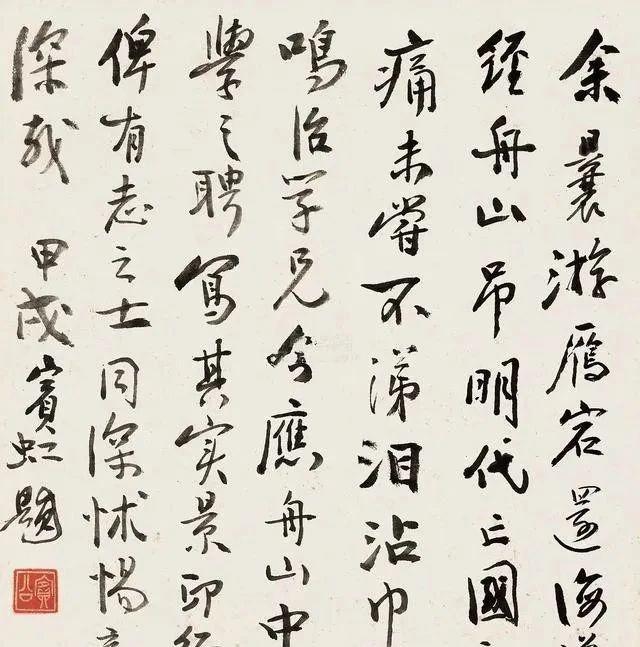 余曩游雁宕還海
經舟山吊明代亡國
痛未嘗不涕泪沾巾
鳴治学兄今應舟山中
學之聘寫其实景印
俾有志之士同深怵惕
深哉
甲戌賓虹題
賓公